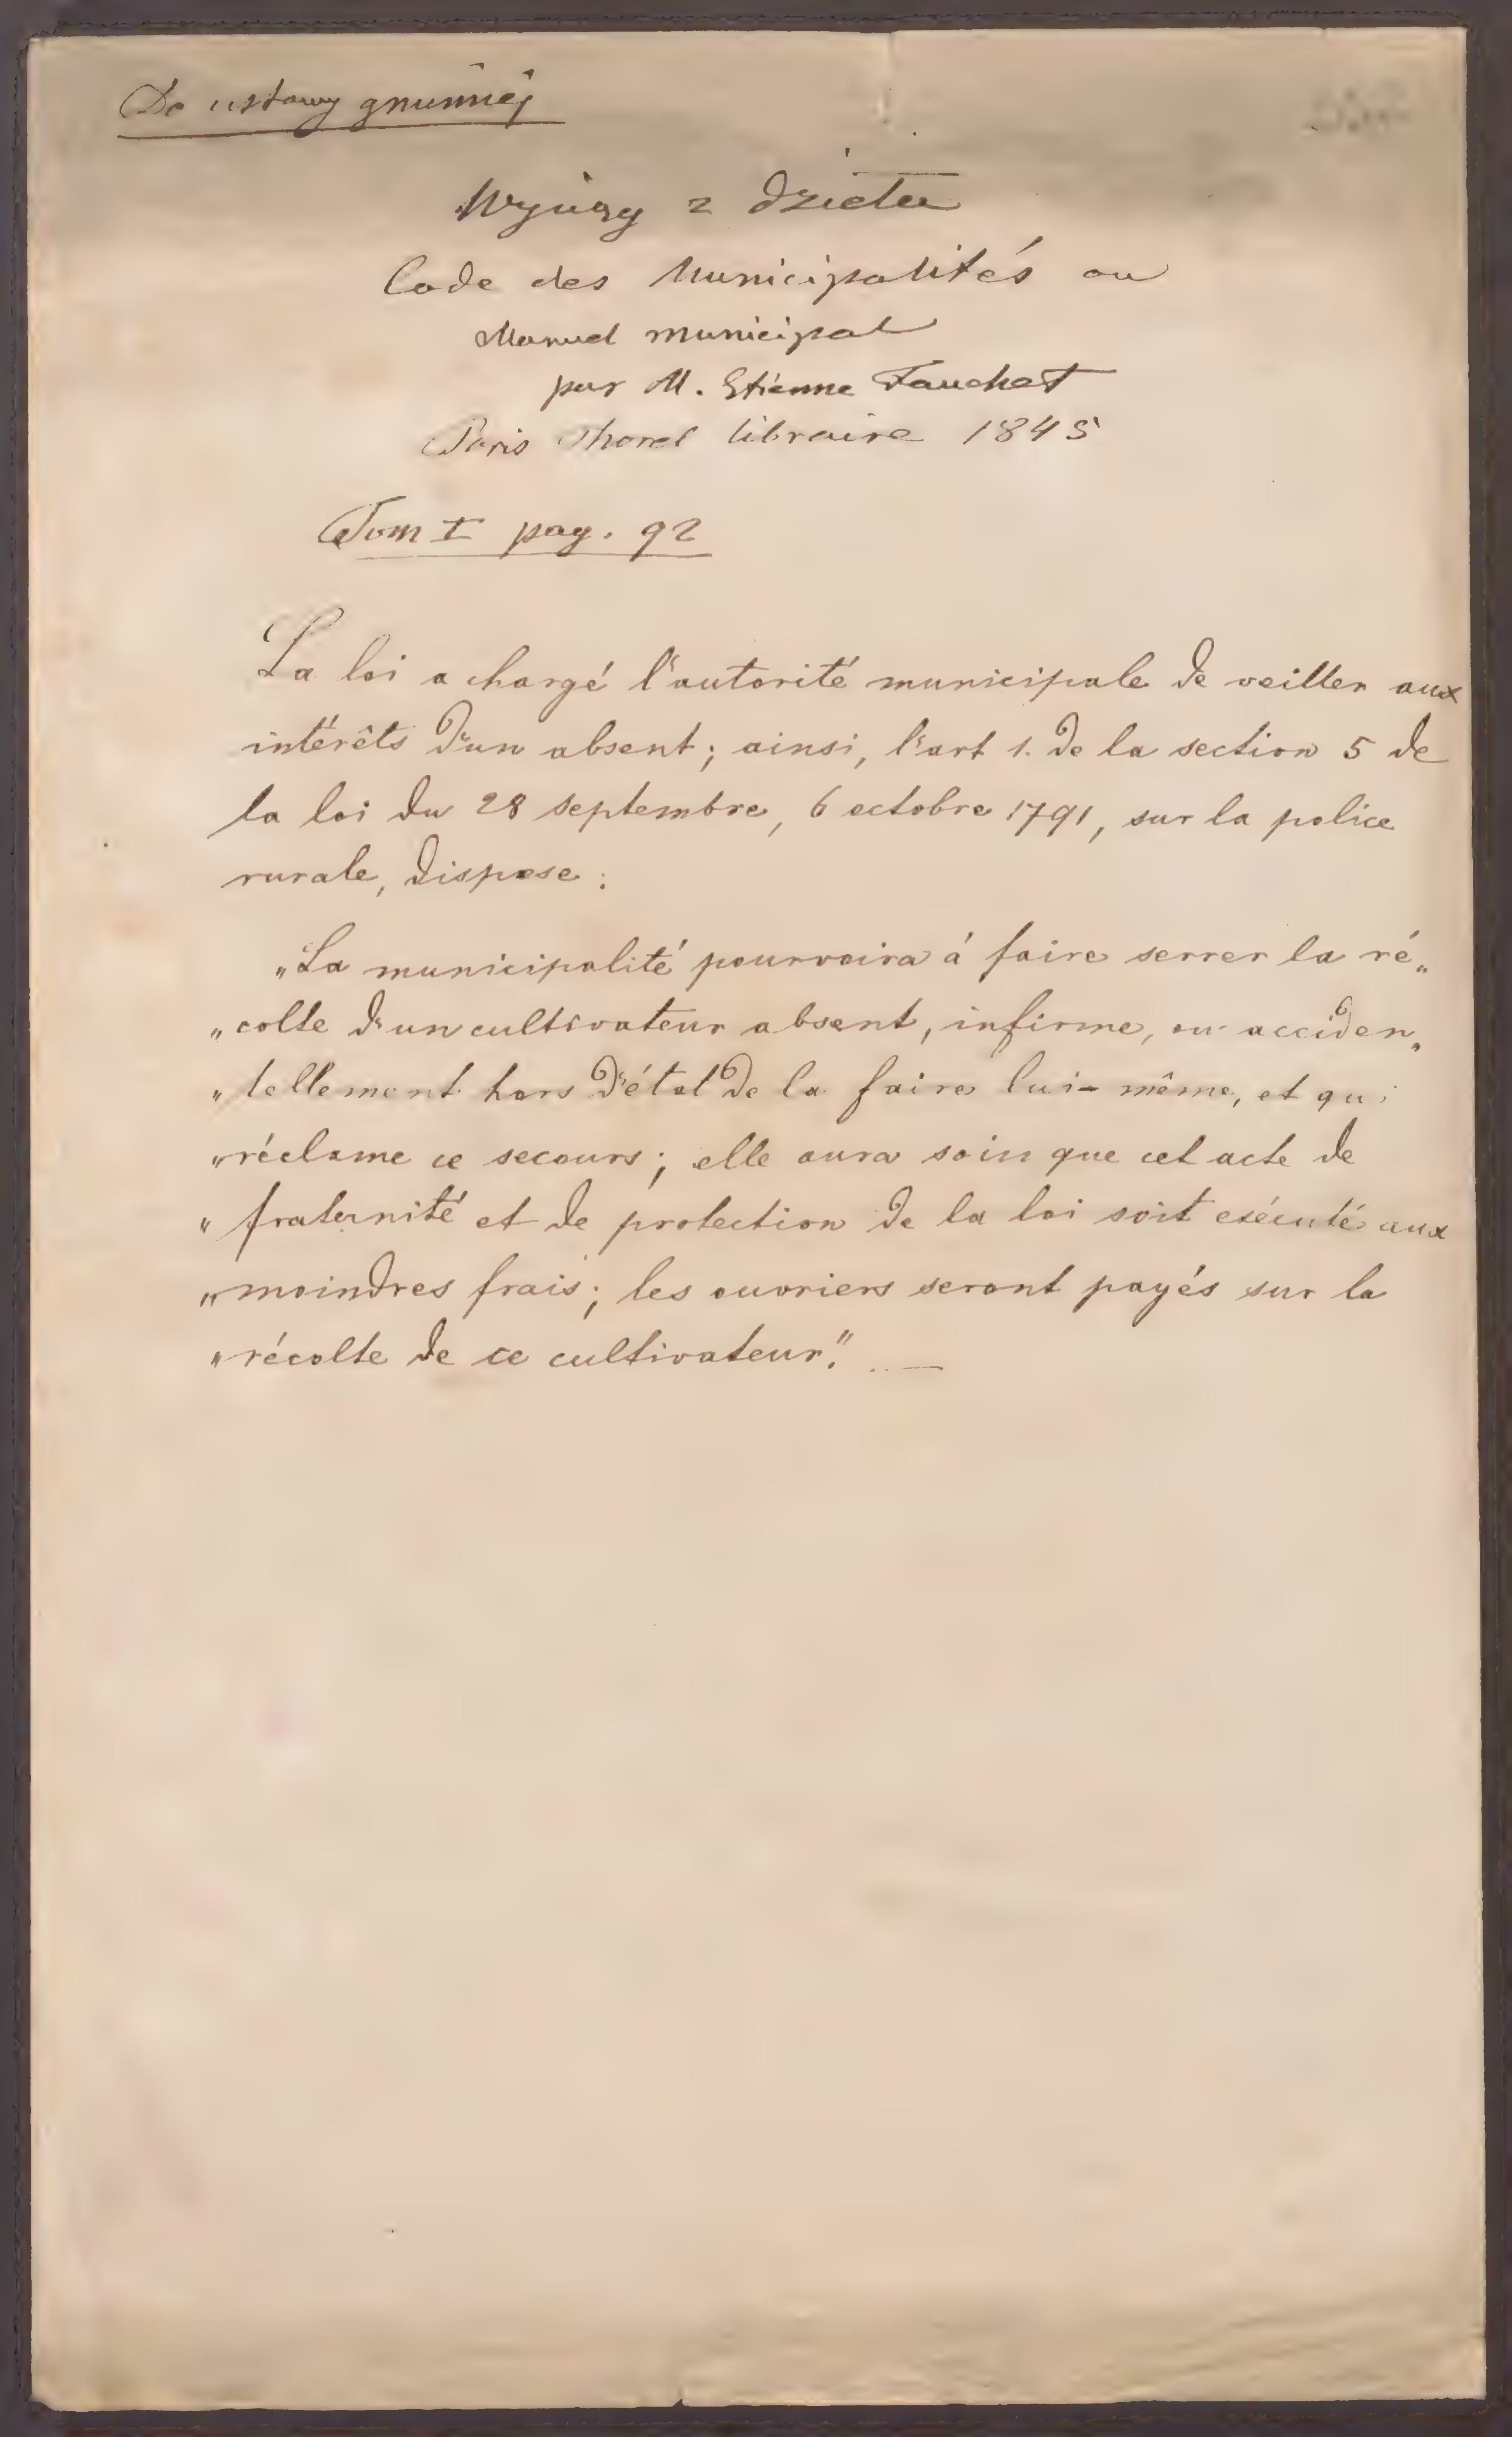 Do ustawy gminnéj
Wyjazy z dzieła
Code des Municipalités ou
Manuel municipal
par M. Etienne Fauchet
Paris Thorel libraire 1845
Tom I pag. 92
La loi a chargé l'autorité municipale de veiller aux
intérêts d'un absent; ainsi, l'art 1. de la section 5 de
la loi du 28 septembre, 6 octobre 1791, sur la police
rurale, dispose:
„La municipalité pourvoira á faire serrer la ré„
„colte d'un cultivateur absent, infirme, ou acciden„
„tellement hors d'état de la faire lui-même, et qui
„réclame ce secours; elle aura soin que cet acte de
„fraternité et de protection de la loi soit exécuté aux
„moindres frais; les ouvriers seront payés sur la
„récolte de ce cultivateur." ..—